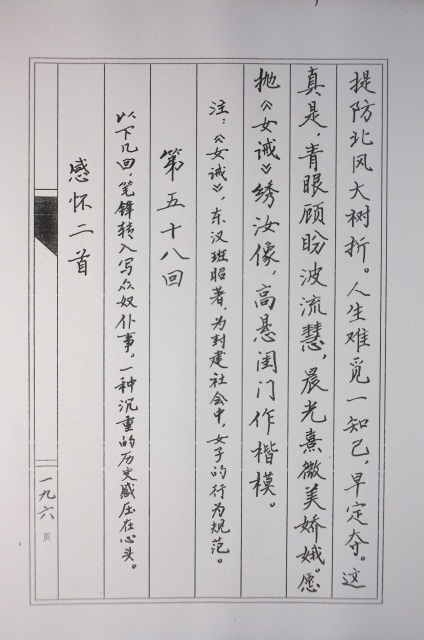 提防北风大树折。人生难觅一知己，早定夺。这
真是，青眼顾盼波流慧，晨光熹微美娇娥。愿
抛《女诫》绣汝像，高悬闺门作楷模。
注：《女诫》，东汉班昭著，为封建社会中，女子的行为规范。
第五十八回
以下几回，笔锋转入写众奴仆事，一种沉重的历史感压在心头。
感怀二首
一九六页